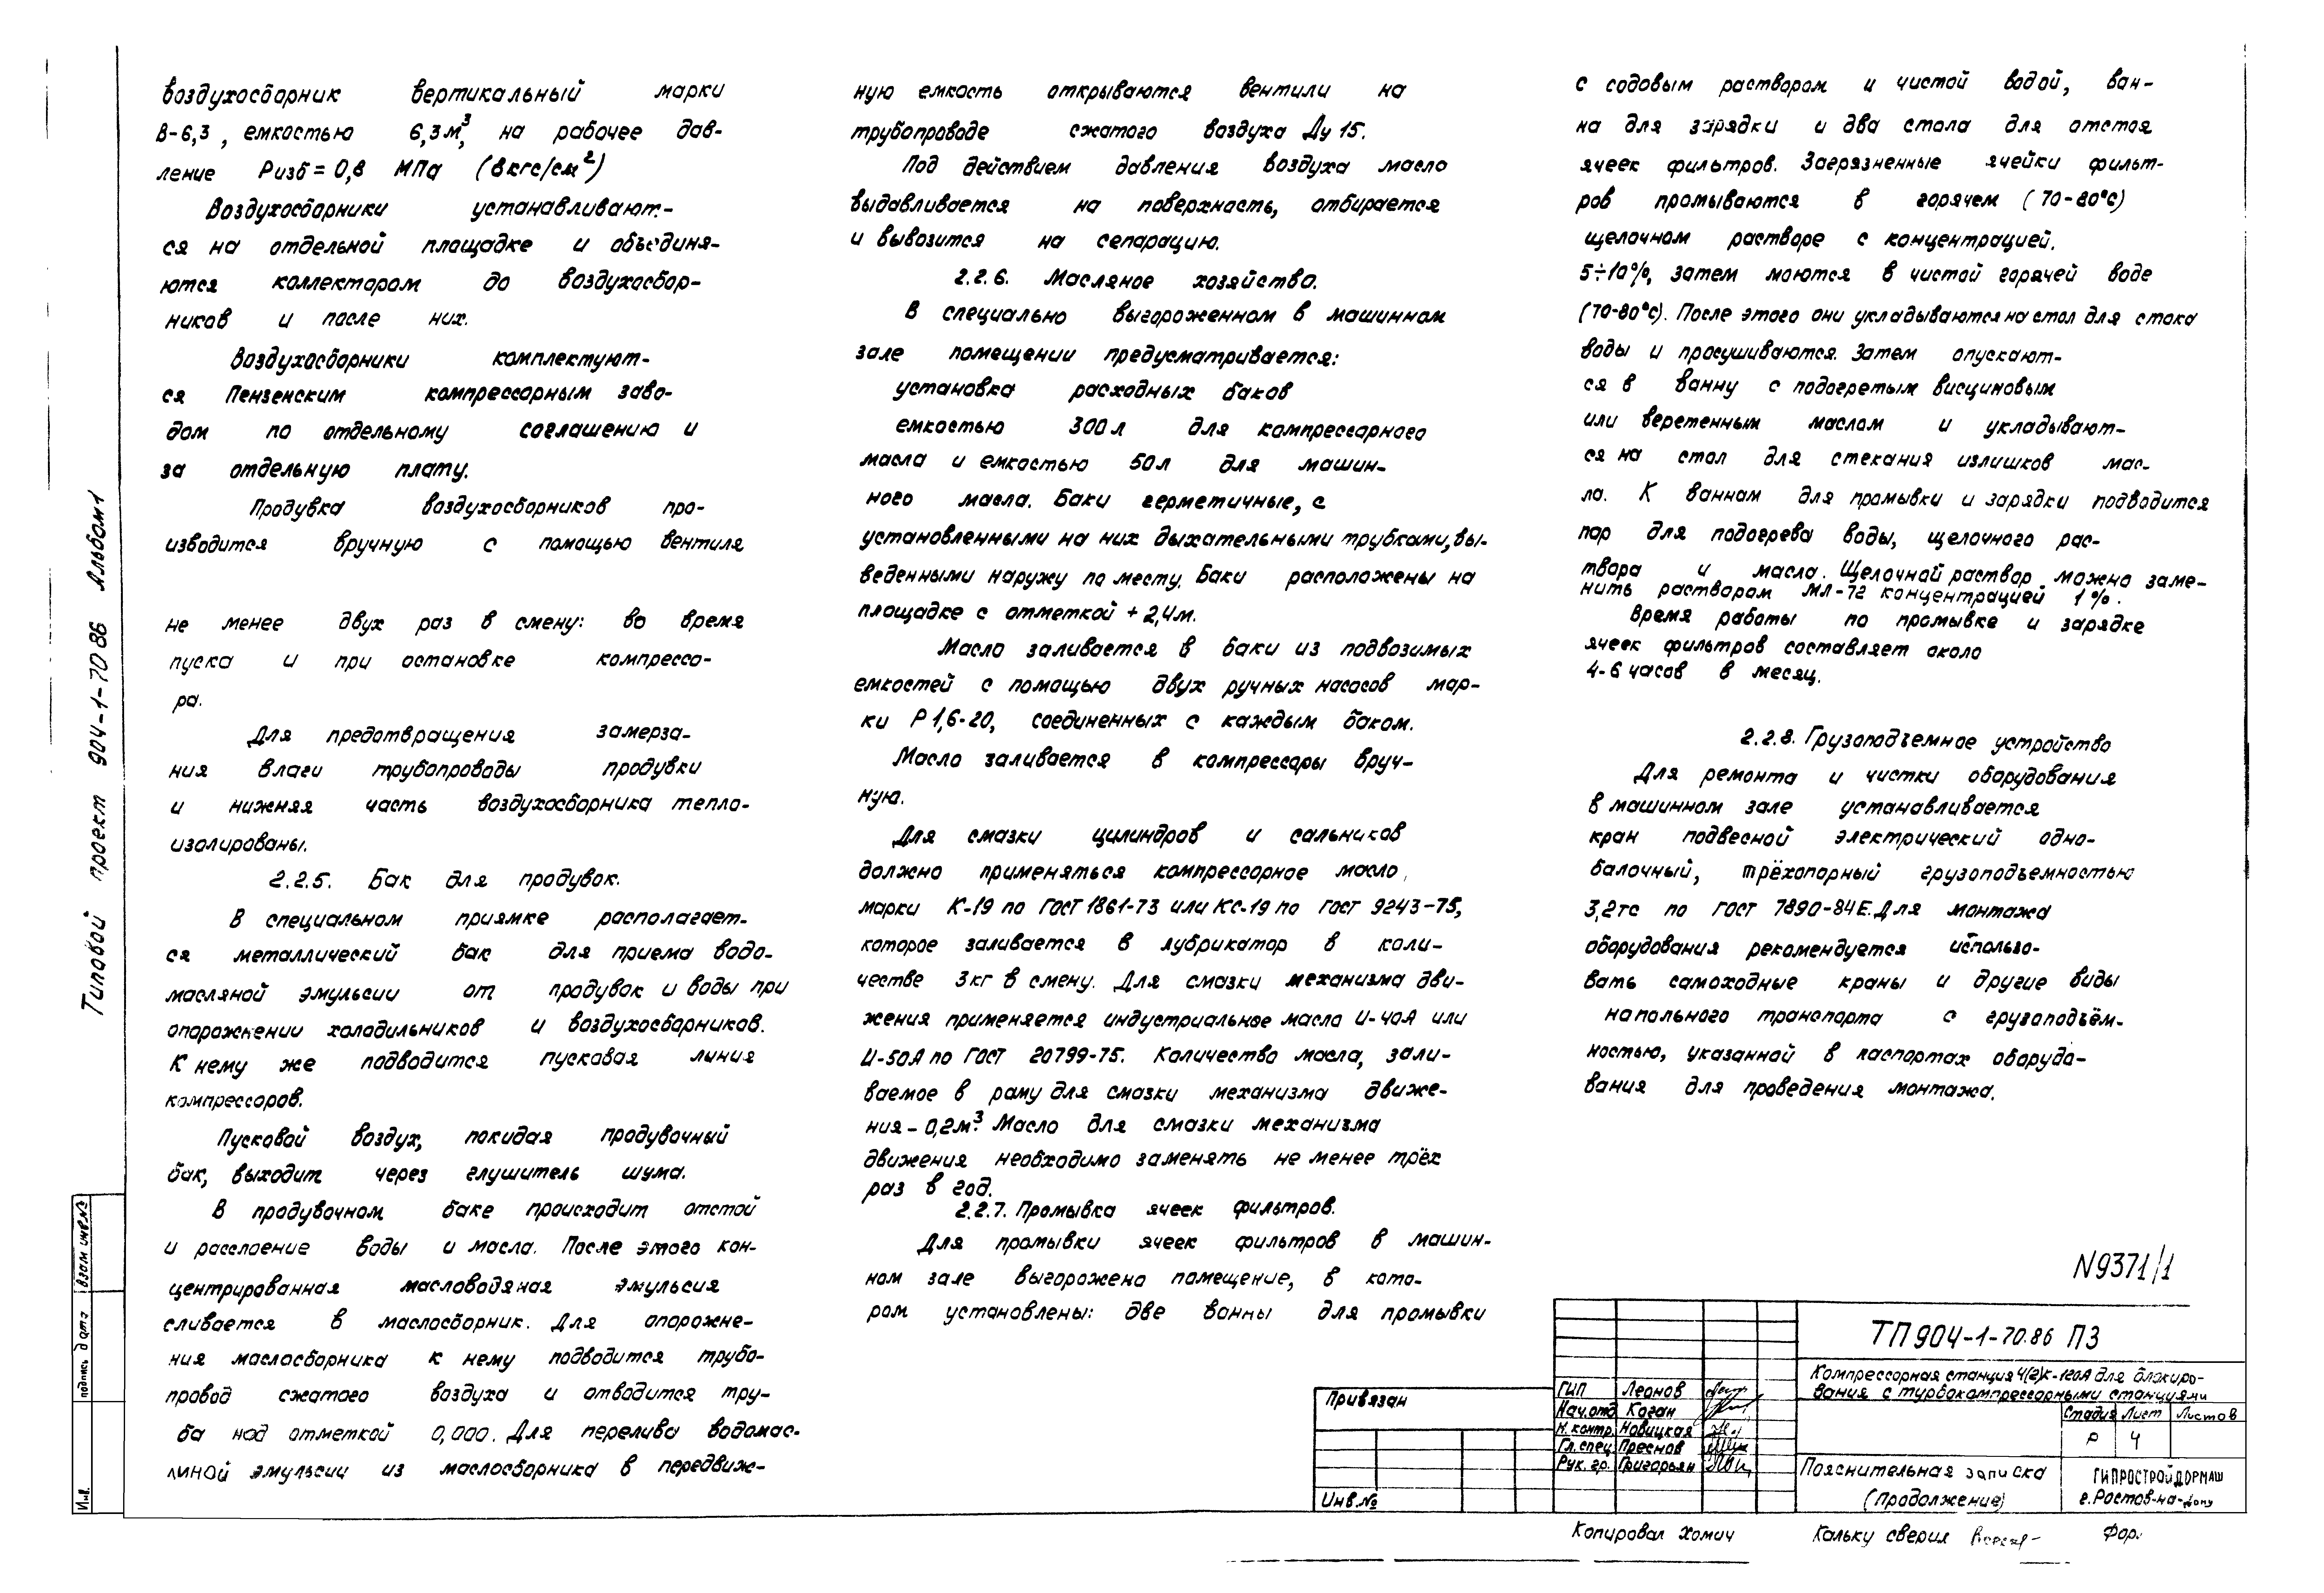 воздухосборник вертикальный марки
В-6,3, емкостью 6,3м³, на рабочее дав-
ление Ризб = 0,8 МПа (8кгс/см²)
Воздухосборники устанавливают-
ся на отдельной площадке и объединя-
ются коллектором до воздухосбор-
ников и после них.
Воздухосборники комплектуют-
ся Пензенским компрессорным заво-
дом по отдельному соглашению и
за отдельную плату.
Продувка воздухосборников про-
изводится вручную с помощью вентиля
не менее двух раз в смену: во время
пуска и при остановке компрессо-
ра.
Для предотвращения замерза-
ния влаги трубопроводы продувки
и нижняя часть воздухосборника тепло-
изолированы.
2.2.5. Бак для продувок.
В специальном приямке располагает-
ся металлический бак для приема водо-
масляной эмульсии от продувок и воды при
опорожнении холодильников и воздухосборников.
К нему же подводится пусковая линия
компрессоров.
Пусковой воздух, покидая продувочный
бак, выходит через глушитель шума.
В продувочном баке происходит отстой
и расслоение воды и масла. После этого кон-
центрированная масловодяная эмульсия
сливается в маслосборник. Для опорожне-
ния маслосборника к нему подводится трубо-
провод сжатого воздуха и отводится тру-
ба над отметкой 0,000. Для перелива водомас-
линой эмульсии из маслосборника в передвиж-
ную емкость открываются вентили на
трубопроводе сжатого воздуха Ду 15.
Под действием давления воздуха масло
выдавливается на поверхность, отбирается
и вывозится на сепарацию.
2.2.6. Масляное хозяйство.
В специально выгороженном в машинном
зале помещении предусматривается:
установка расходных баков
емкостью 300л для компрессорного
масла и емкостью 50л для машин-
ного масла. Баки герметичные, с
установленными на них дыхательными трубками, вы-
веденными наружу по месту. Баки расположены на
площадке с отметкой + 2,4м.
Масло заливается в баки из подвозимых
емкостей с помощью двух ручных насосов мар-
ки Р 1,6-20, соединенных с каждым баком.
Масло заливается в компрессоры вруч-
ную.
Для смазки цилиндров и сальников
должно применяться компрессорное масло,
марки К-19 по ГОСТ 1861-73 или КС-19 по ГОСТ 9243-75,
которое заливается в лубрикатор в коли-
честве 3кг в смену. Для смазки механизма дви-
жения применяется индустриальное масло И-40А или
И-50А по ГОСТ 20799-75. Количество масла, зали-
ваемое в раму для смазки механизма движе-
ния - 0,2м³. Масло для смазки механизма
движения необходимо заменять не менее трёх
раз в год.
2.2.7. Промывка ячеек фильтров.
Для промывки ячеек фильтров в машин-
ном зале выгорожено помещение, в кото-
ром установлены: две ванны для промывки
с содовым раствором и чистой водой, ван-
на для зарядки и два стола для отстоя
ячеек фильтров. Загрязненные ячейки фильт-
ров промываются в горячем (70-80°С)
щелочном растворе с концентрацией.
5÷10%, затем моются в чистой горячей воде
(70-80°С). После этого они укладываются на стол для стока
воды и просушиваются. Затем опускают-
ся в ванну с подогретым висциновым
или веретенным маслом и укладывают-
ся на стол для стекания излишков мас-
ла. К ваннам для промывки и зарядки подводится
пар для подогрева воды, щелочного рас-
твора и масла. Щелочной раствор можно заме-
нить раствором МЛ-72 концентрацией 1%.
Время работы по промывке и зарядке
ячеек фильтров составляет около
4-6 часов в месяц.
2.2.8. Грузоподъемное устройство
Для ремонта и чистки оборудования
в машинном зале устанавливается
кран подвесной электрический одно-
балочный, трёхопорный грузоподъемностью
3,2тс по ГОСТ 7890-84Е. Для монтажа
оборудования рекомендуется использо-
вать самоходные краны и другие виды
напольного транспорта с грузоподъём-
ностью, указанной в паспортах оборудо-
вания для проведения монтажа.
Типовой проект 904-1-70 86 Альбом 1
взам инв.№
подпись дата
Инв.
N9371/1
ТП 904-1-70.86 ПЗ
Компрессорная станция 4(2)К-120А для блокиро-
вания с турбокомпрессорными станциями
Стадия Лист Листов
Р 4
Пояснительная записка
(Продолжение)
ГИПРОСТРОЙДОРМАШ
г.Ростов-на-Дону
ГИП Леонов
Нач.отд Коган
Н. контр. Новицкая
Гл. спец. Преснов
Рук. гр. Григорьян
Привязан
Инв.№
Копировал Хомич
Кальку сверил
Фор.